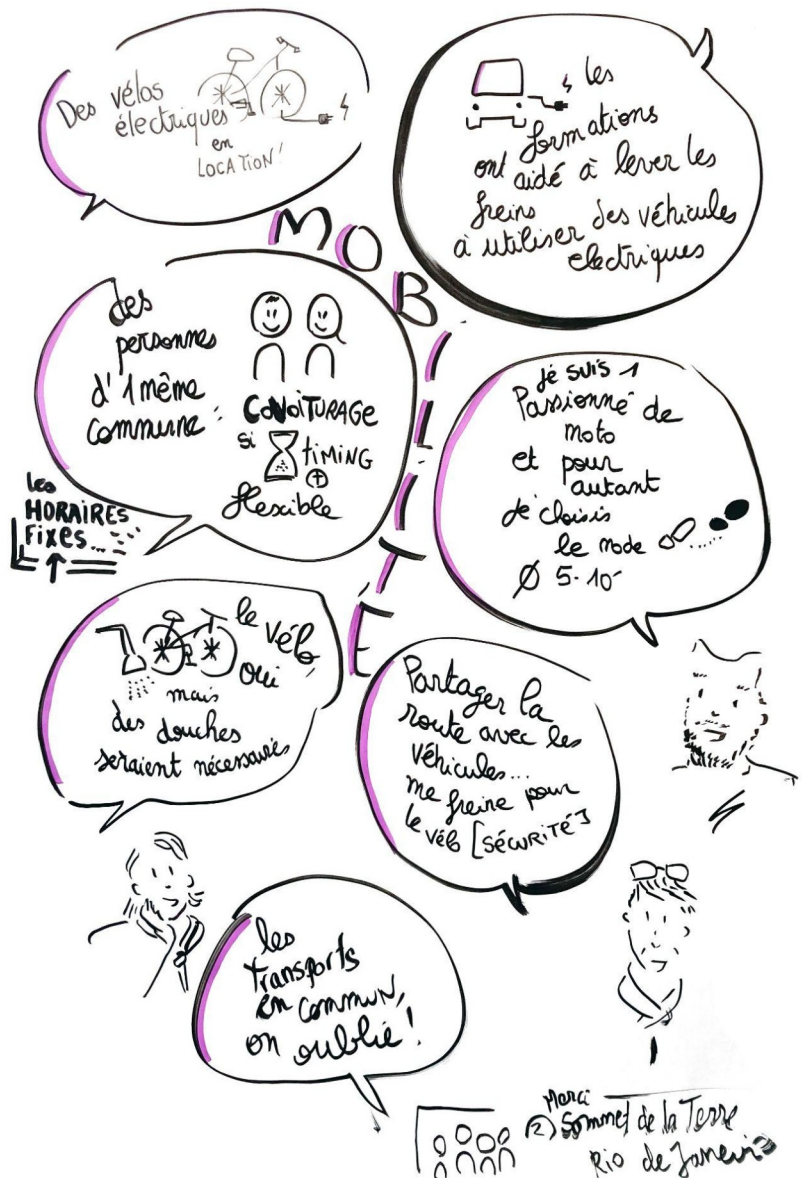 Des vélos
électriques
en
LOCATION!
les
formations
ont aidé à lever les
freins
à utiliser des véhicules
electriques
MOBILITÉ
des
personnes
d'1 même
commune :
COVOITURAGE
si
timiNG
+
flexible
les
HORAIRES
Fixes...
Je suis 1
Passionné de
moto
et pour
autant
je choisis
le mode
Ø 5-10-
le vélo,
oui
mais
des douches
seraient nécessaires
Partager la
route avec les
véhicules...
me freine pour
le vélo [SÉCURITÉ]
les
Transports
en commun,
on oublie!
Merci
(2) Sommet de la Terre
Rio de Janeiro